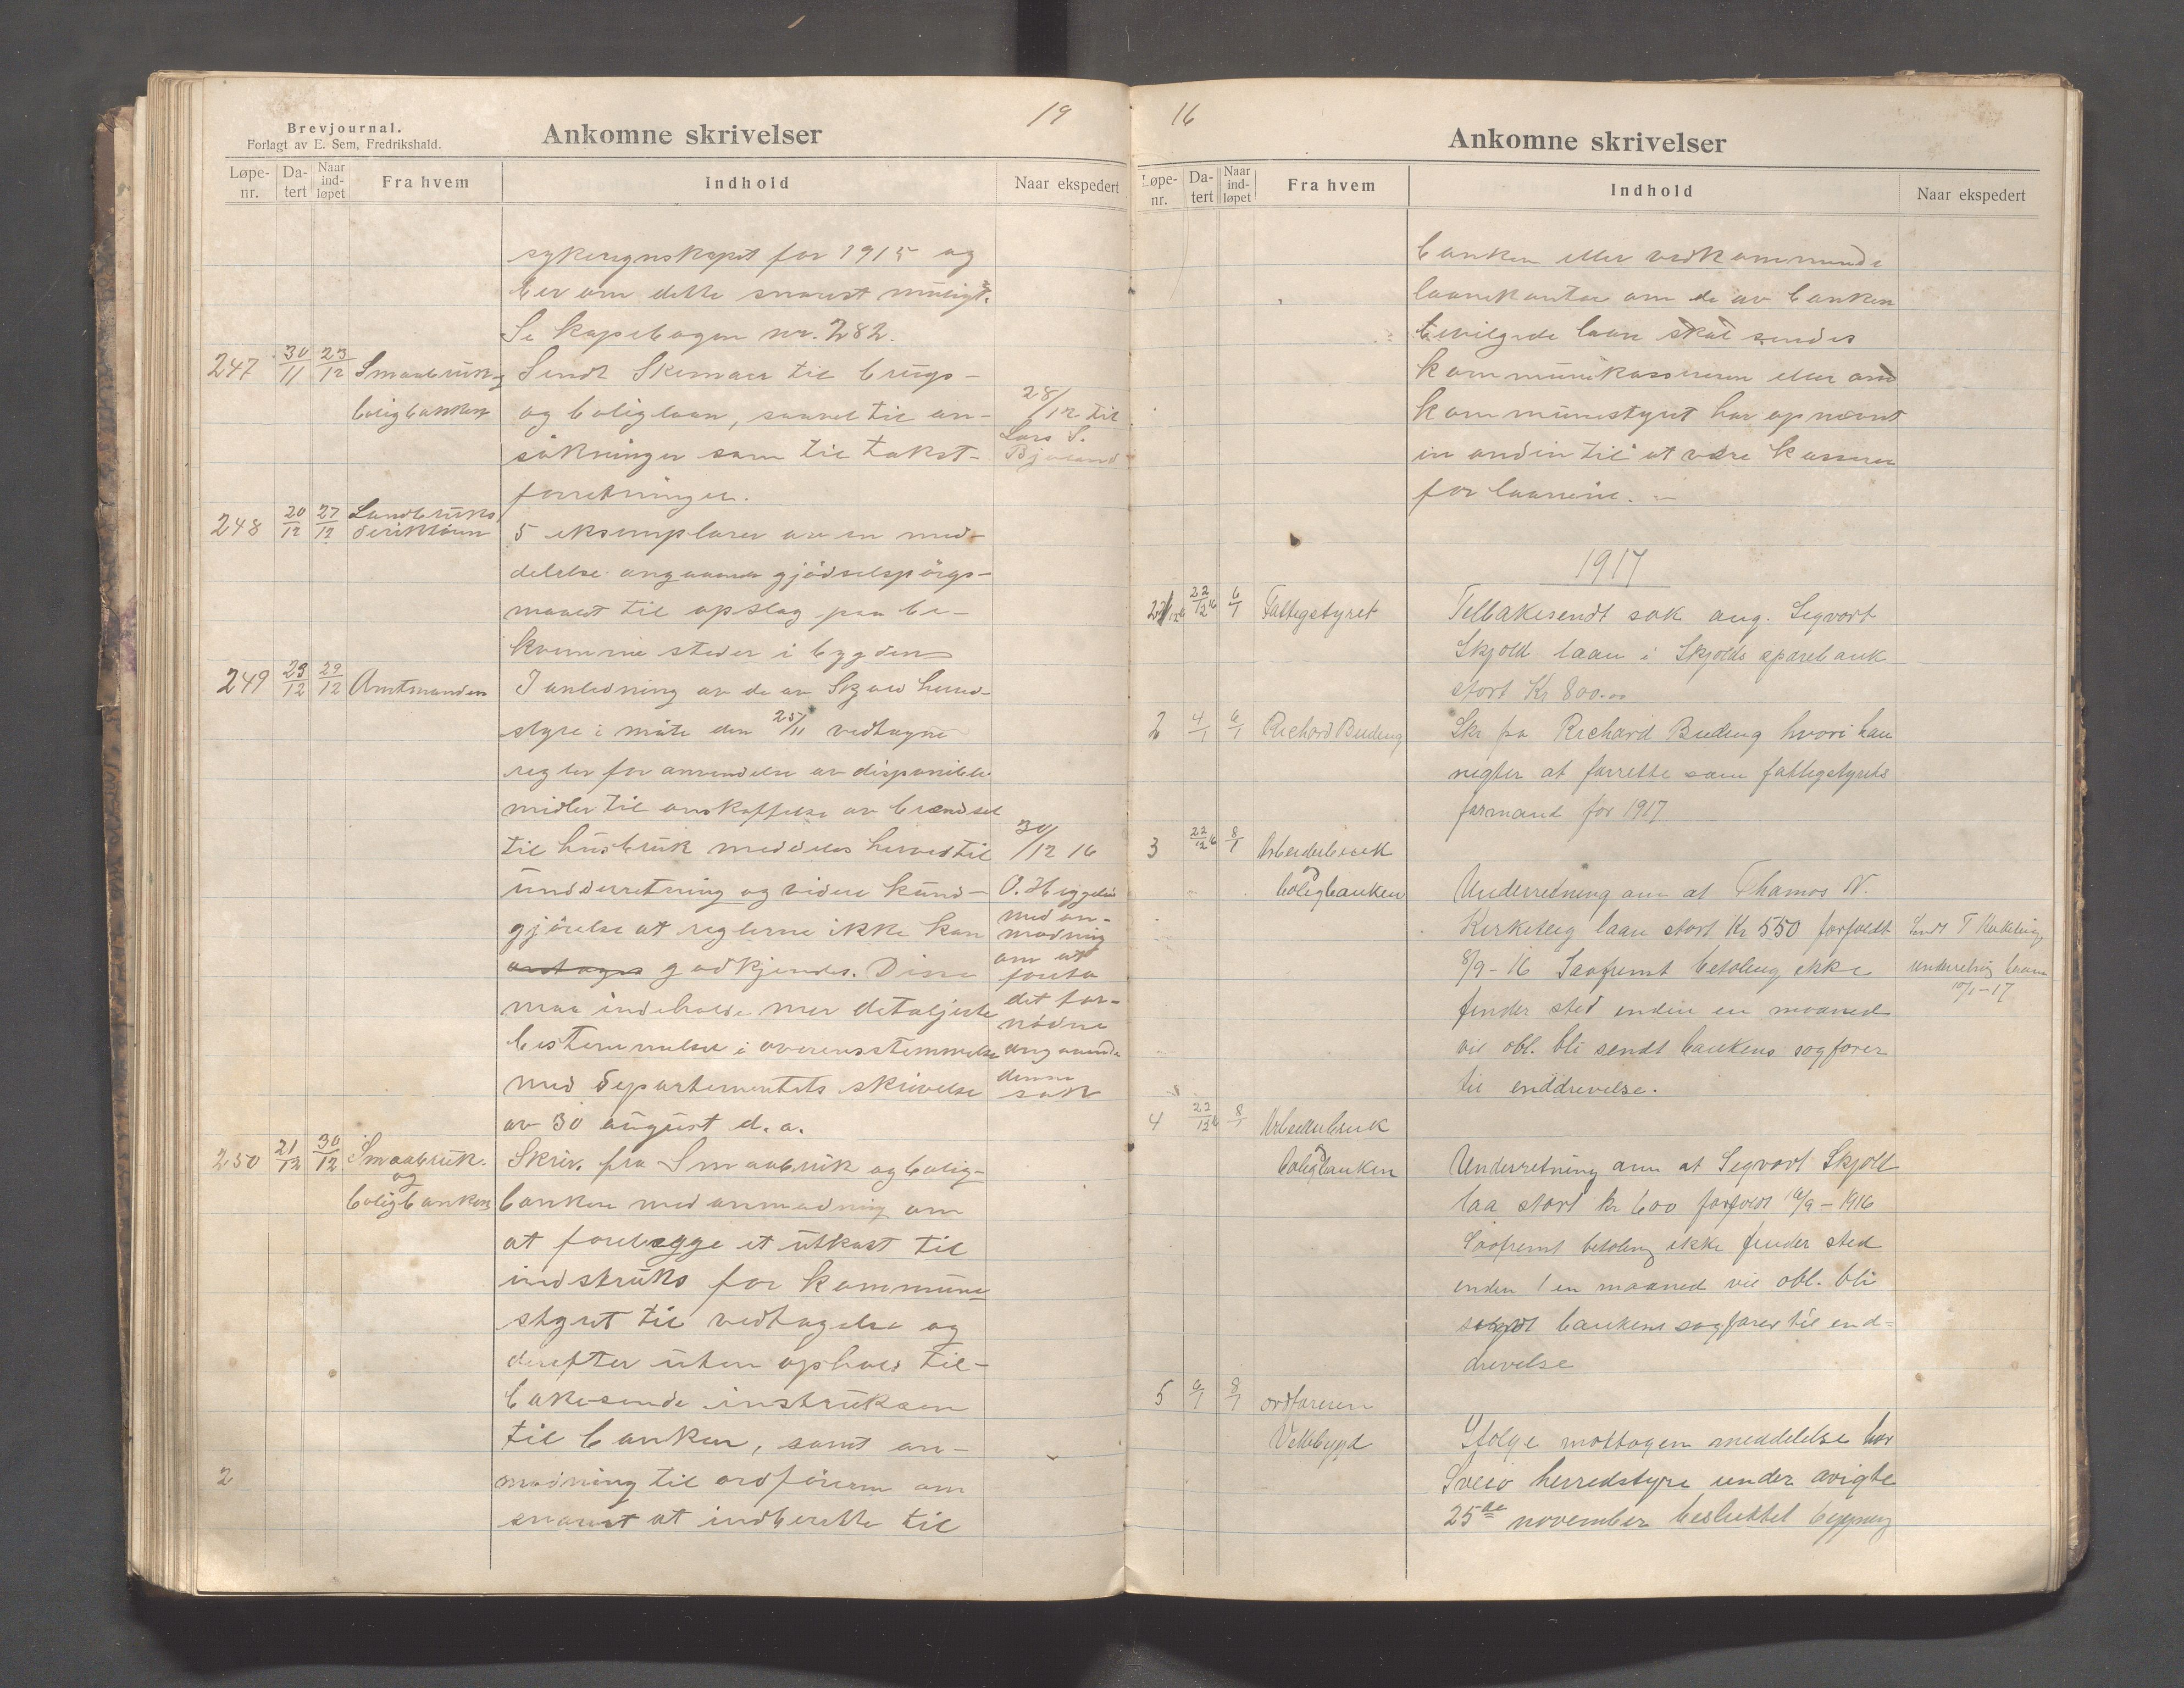 19
Brevjournal.
Forlagt av E. Sem, Fredrikshald.
Ankomne skrivelser
Løpe-nr. Da-tert Naar ind-løpet Fra hvem Indhold Naar ekspedert
sykeregnskapet for 1915 og
ber om dette snarest muligt.
Se kopibogen nr. 282.
247 30/11 23/12 Smaabruk- Sendt Skemaer til brugs-
boligbanken og boliglaan, saavel til an- 28/12 til
søkninger som til takst- Lars S.
forretninger. Bjoland
248 20/12 27/12 Landbruks
direktören 5 eksemplarer av en med-
delelse angaaende gjødselspörgs-
maalet til opslag paa be-
kvemme steder i bygden
249 23/12 29/12 Amtmanden I anledning av de av Skjold herred-
styre i möte den 25/11 vedtagne
regler for anvendelse av disponible
midler til anskaffelse av brændsel
til husbruk meddeles herved til 30/12 16
underretning og videre kund- O. Heggelu
gjörelse at reglerne ikke kan med an-
modning
antages godkjendes. Disse om at
foreta
maa indeholde mer detaljerte det for-
nödne
bestemmelser i overensstemmelse angaaende
med departementets skrivelse denne
sak
av 30 august d. a.
250 21/12 30/12 Smaabruk Skriv. fra Smaabruk og bolig-
og
boligbanken banken med anmodning om
at forelægge et utkast til
indstruks for kommune
styret til vedtagelse og
derefter uten ophold til-
bakesende instruksen
til banken, samt an-
2 modning til ordföreren om
snarest at indberette til
16
Ankomne skrivelser
Løpe-nr. Da-tert Naar ind-løpet Fra hvem Indhold Naar ekspedert
banken eller vedkommende
laanekontor om de av banken
bevilgede laan skal sendes
kommunekassereren eller om
kommunestyret har opnævnt
en anden til at være kasserer
for laanene.
1917
22/12 16 6/1 Fattigstyret Tilbakesendt sak ang. Sigvart
Skjold laan i Skjolds sparebank
stort Kr 800.00
2 4/1 6/1 Richard Buding Skr fra Richard Buding hvori han
negter at forrette som fattigstyrets
formand for 1917
3 22/12 16 8/1 Arbeiderbruk
boligbanken Underretning om at Thomas N.
Kirketeig laan stort Kr 550 forfaldt Sendt T Kirketeig
8/9-16 Saafremt betaling ikke underretning
10/1-17
finder sted inden en maaned
vil obl. bli sendt bankens sagfører
til inddrivelse.
4 22/12 16 8/1 Arbeiderbruk
boligbanken Underretning om at Sigvart Skjold
laa stort kr 600 forfaldt 16/9-1916
Saafremt betaling ikke finder sted
inden 1 en maaned vil obl. bli
sendt bankens sagfører til ind-
drivelse
5 6/1 8/1 ordføreren
Vikebygd Ifølge mottagen meddelelse har
Sveio herredstyre under avigte
25de november besluttet bygning